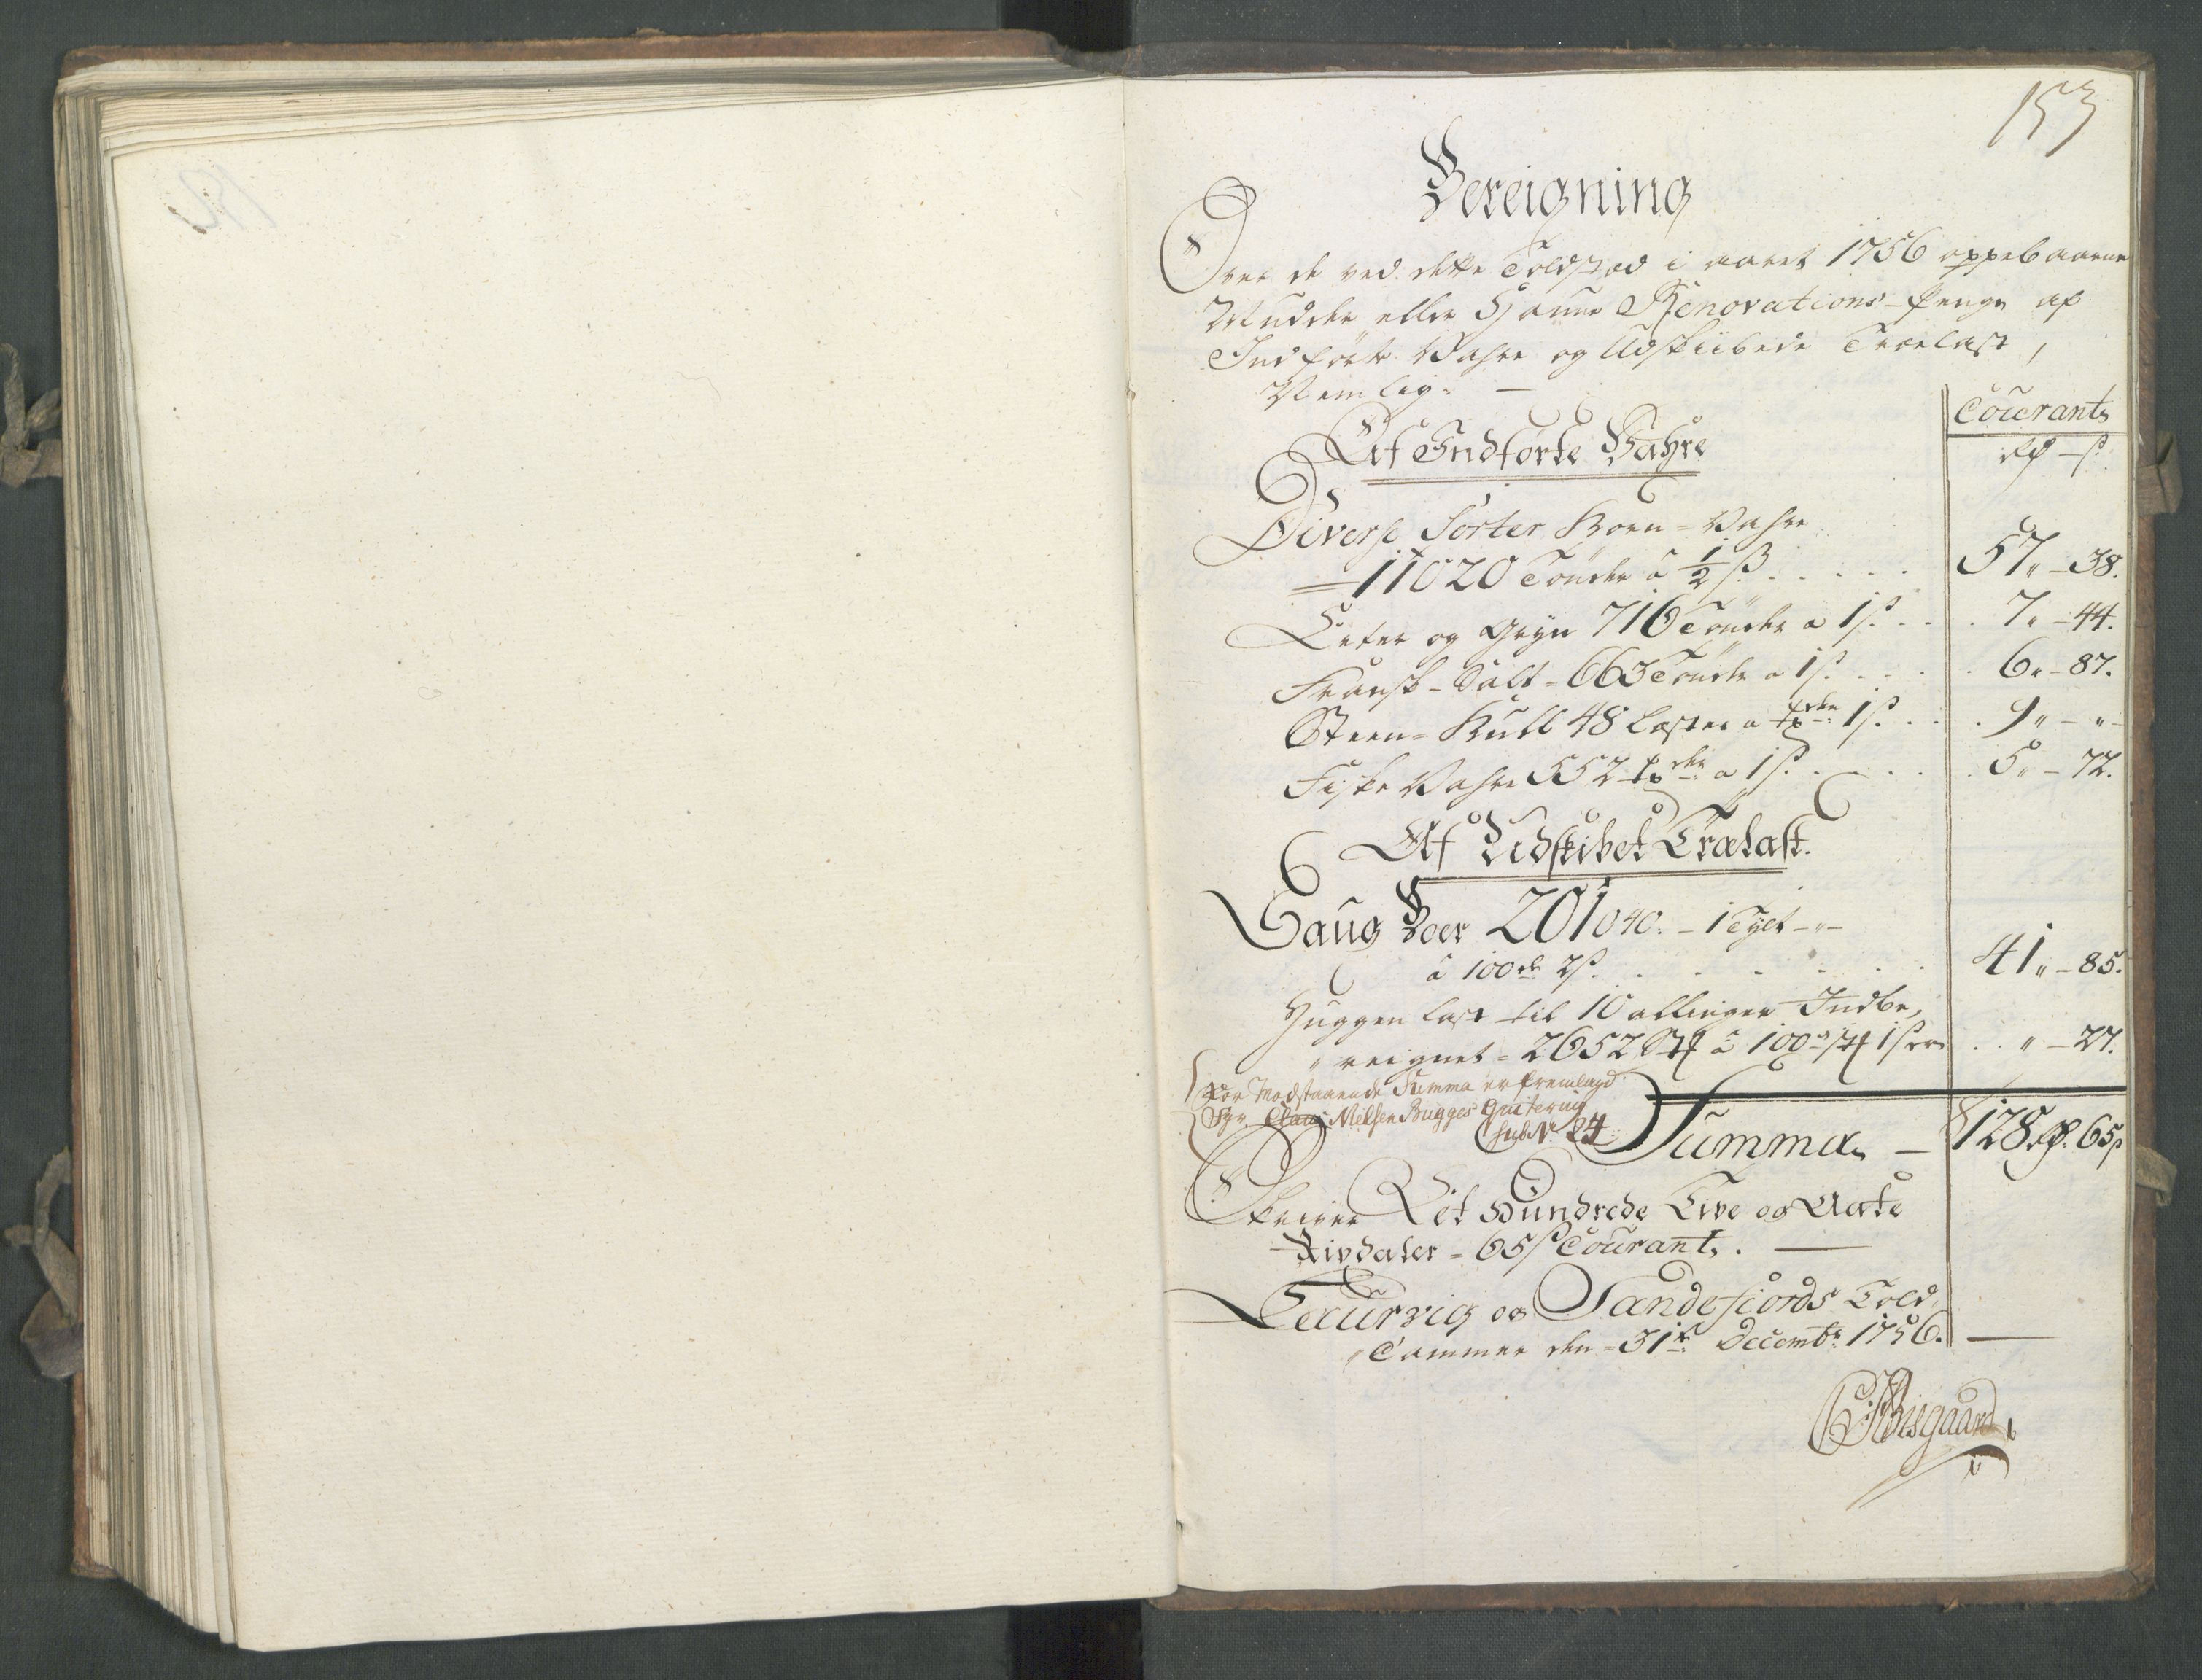 153
Bereigning
Over de ved dette Toldsted i aaret 1756 oppebaarne
Mudder eller Hafne Renovations-penge af
Indførte Vahre og Udskibede Trælast,
Nemlig: —
Courant
Rd — ß
Af Indførte Vahre
Diverse Sorter Korn-Vahre
11020 Tønder a ½ ß . . . . . 57 „ — 38.
Erter og Gryn 716 Tønder a 1 ß . . . 7 „ — 44.
Fransk-Salt - 663 Tønder a 1 ß . . . . 6 „ — 87.
Steen-Kull 48 Lester a Tønden 1 ß . . . 9 „ — „ —
Fiske Vahre 552 Tønder a 1 ß . . . . . 5 „ — 72.
Af Udskibet Trælast.
Saug Boer 201040. — 1 Tylt — „ —
â 100de 2 ß . . . . . . 41 „ — 85.
Huggen last til 10 allinger Indbe„
„reignet - 2652 Stk â 100de Stk 1 ß . . „ — 27.
For Modstaaende Summa er fremlagd
Sgr. Nielsen Bugges Qvitering
sub No 24
Summa — 128 Rd. 65 ß
Skriver Et Hundrede Tive og Aate
Rixdaler - 65 ß Courant. —
Laurvig og Sandefiords Told„
„Cammer den - 31te Decembr 1756. —